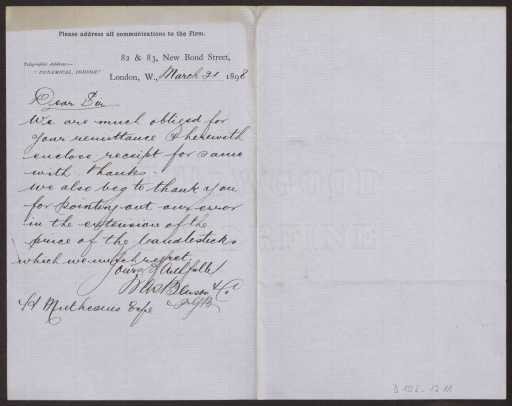 Please address all communications to the Firm.
82 & 83, New Bond Street,
Telegraphic Address:—
London, W., March 31 1898
Dear Sir
We are much obliged for
your remittance & herewith
enclose receipt for same
with thanks.
We also beg to thank you
for pointing out our error
in the extension of the
price of the Candlesticks
which we much regret.
Yours faithfully
& Co
Esqe